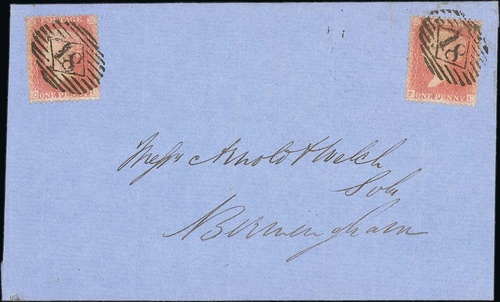 POSTAGE
18
ONE PENNY
18
ONE PENNY
Messrs Arnold & Welch
Sols
Birmingham